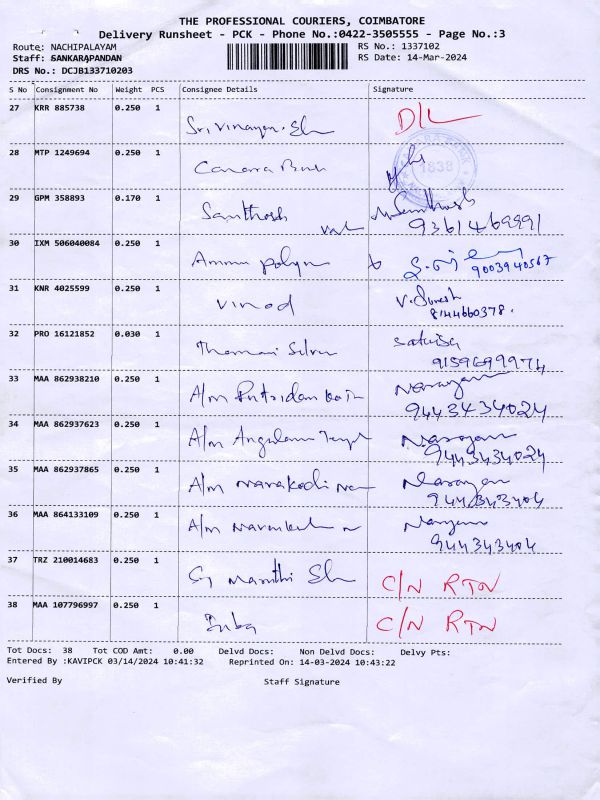 THE PROFESSIONAL COURIERS, COIMBATORE
Delivery Runsheet - PCK - Phone No.:0422-3505555 - Page No.:3
Route: NACHIPALAYAM
RS No.: 1337102
Staff: SANKARAPANDAN
RS Date: 14-Mar-2024
DRS No.: DCJB133710203
S No Consignment No Weight PCS Consignee Details Signature
27 KRR 885738 0.250 1 D/L
28 MTP 1249694 0.250 1 Canara Bank 1838
29 GPM 358893 0.170 1 Santhosh Santhosh
9361469991
30 IXM 506040084 0.250 1 Ammu
9003940567
31 KNR 4025599 0.250 1 Vinod V. Suresh
8144660378.
32 PRO 16121852 0.030 1
9159699974
33 MAA 862938210 0.250 1 A/m Narayan
9443434024
34 MAA 862937623 0.250 1 A/m Narayan
9443434024
35 MAA 862937865 0.250 1 A/m Narayan
944343404
36 MAA 864133109 0.250 1 A/m
944343404
37 TRZ 210014683 0.250 1 C/N RTN
38 MAA 107796997 0.250 1 Inba C/N RTN
Tot Docs: 38 Tot COD Amt: 0.00 Delvd Docs: Non Delvd Docs: Delvy Pts:
Entered By :KAVIPCK 03/14/2024 10:41:32 Reprinted On: 14-03-2024 10:43:22
Verified By Staff Signature